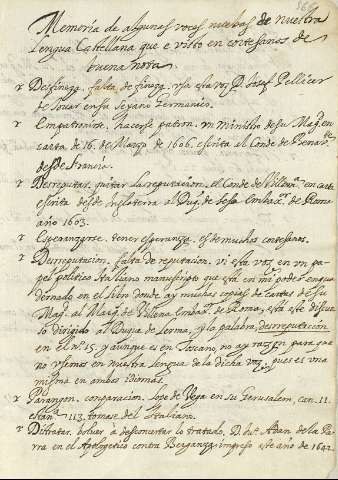 Memoria de algunas voces nuebas de nuestra
lengua Castellana que e visto en cortesanos de
buena nota.
Desfineza, falta de fineza. usa esta voz D. Josef Pellicer
de Tovar en su Seyano Germanico.
Empatronirse, hacerse patron. un Ministro de su Magd. en
carta de 16. de Março de 1606. escrita al Conde de
desde Francia.
Desreputar, quitar la reputacion. el Conde de en carta
escrita desde Inglaterra al Duq. de Sesa Embaxor. de Roma
año 1603.
Esperanzarse. tener esperanza. es de muchos cortesanos.
Desreputacion, falta de reputacion. vi esta voz en un pa-
pel politico Italiano manuscripto que està en mi poder enqua
dernado en el libro donde ay muchas copias de cartas de su
Mag. al Marq. de Villena Embaxr. de Roma, està este discur
so dirigido al Duque de Lerma, y la palabra, desreputacion
en el n.º 15. y aunque es en Toscano no ay razon para que
no usemos en nuestra lengua de la dicha voz, pues es una
misma en ambos idiomas.
Parangon. conparacion. Lope de Vega en su Gerusalem, can. 11.
estanª. 113. tomas del Italiano.
Ditratar, bolver à desconcertar lo tratado. D. Juº. Adan de la Pa-
rra en el Apologetico contra Berganza, impreso este año de 1642.